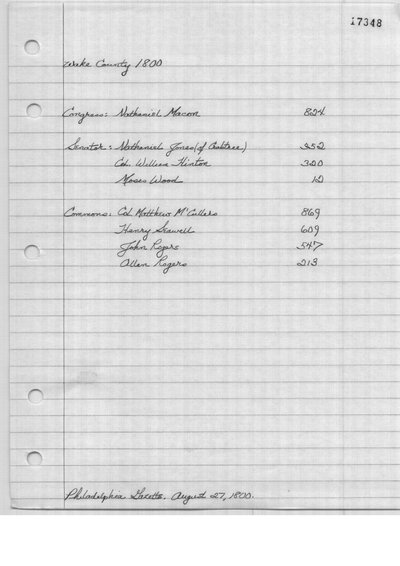 17348
Wake County 1800
Congress: Nathaniel Macon 824
Senator: Nathaniel Jones (of Crabtree) 352
Col. William Hinton 320
Moses Wood 12
Commons: Col. Matthew McCullers 869
Henry Seawell 609
John Rogers 547
Allen Rogers 213
Philadelphia Gazette. August 27, 1800.